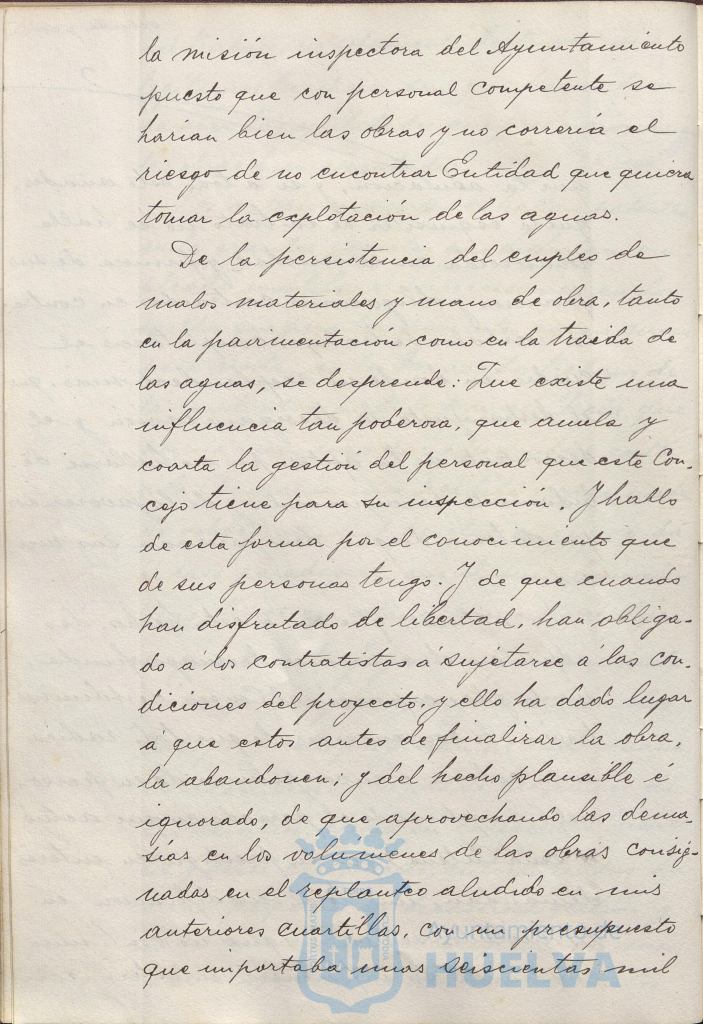 la misión inspectora del Ayuntamiento
puesto que con personal competente se
harian bien las obras y no correria el
riesgo de no encontrar Entidad que quiera
tomar la explotación de las aguas.
De la persistencia del empleo de
malos materiales y mano de obra, tanto
en la pavimentación como en la traida de
las aguas, se desprende: Que existe una
influencia tan poderosa, que anula y
coarta la gestión del personal que este Con-
cejo tiene para su inspección. Y hablo
de esta forma por el conocimiento que
de sus personas tengo. Y de que cuando
han disfrutado de libertad, han obliga-
do á los contratistas á sujetarse á las con-
diciones del proyecto, y ello ha dado lugar
á que estos antes de finalizar la obra,
la abandonen; y del hecho plausible é
ignorado, de que aprovechando las dema-
sias en los volúmenes de las obras consig-
nadas en el replanteo aludido en mis
anteriores cuartillas, con un presupuesto
que importaba unas seiscientas mil
Ayuntamiento de
HUELVA